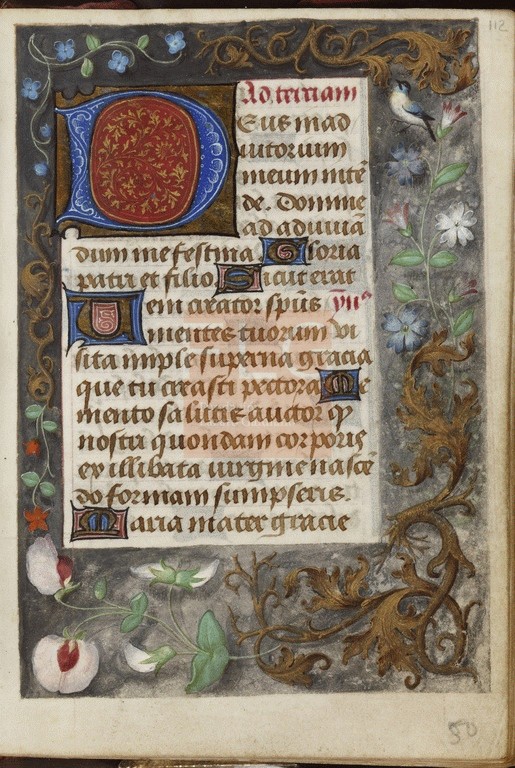 112
Ad terciam
Deus in ad
iutorium
meum inte
de. Domine
ad adiuuā
dum me festina. Gloria
patri et filio Sicut erat
Ueni creator spūs ym⁹
mentes tuorum vi
sita imple superna gracia
que tu creasti pectora. Me
mento salutis auctor qͥ
nostri quondam corporis
ex illibata uirgine nascē
do formam sumpseris.
Maria mater gracie
50